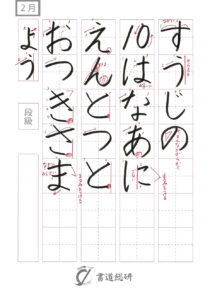 2月
すうじの
10はなあに
えんとつと
おつきさま
よう
段級
書道総研